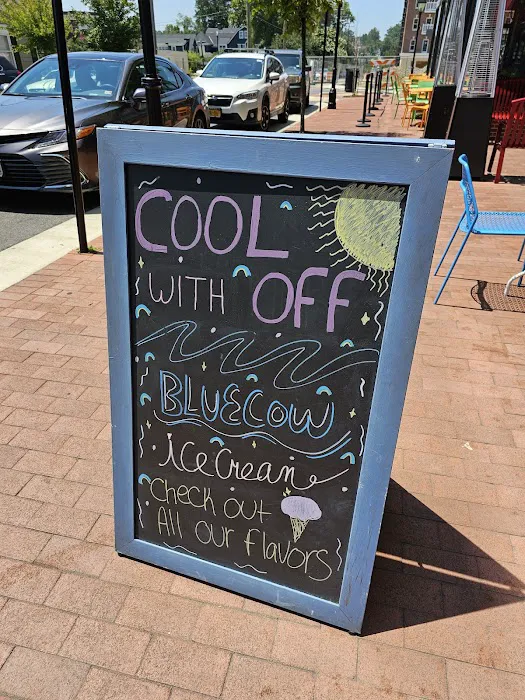 COOL
WITH OFF
BLUECOW
Ice Cream
Check out
All our flavors